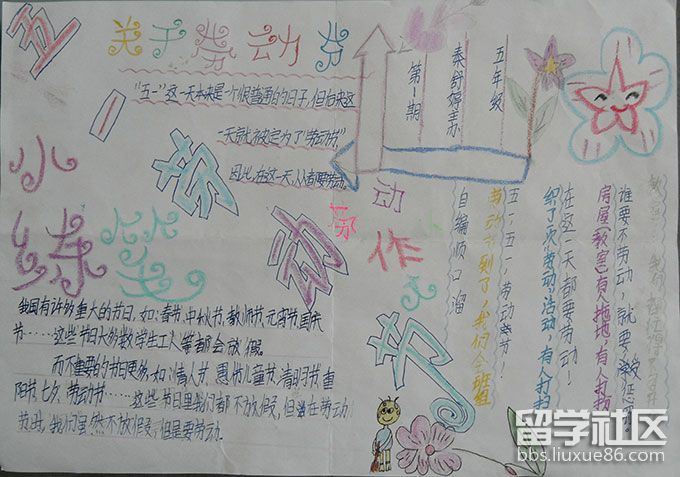 五一劳动节
关于劳动节
"五一"这一天本来是一个很普通的日子,但后来这
一天就被定为了"劳动节"
因此,在这一天,人人都要劳动。
五年级
秦舒婷主办
第1期
小练笔
我国有许多重大的节日,如:春节、中秋节、教师节、元宵节、国庆
节……这些节日大多数学生工人等都会放假。
而不重要的节日更多,如:情人节、愚人节、儿童节、清明节、重
阳节、七夕、劳动节……这些节日里我们都不放假,但当在劳动
节里,我们虽然不放假,但是要劳动。
创作
自编顺口溜
五一五一,劳动节!
劳动节到了,我们全班组
织了次劳动活动,有人打扫
在这一天都要劳动!
房屋(教室)有人拖地,有人打扫
谁要不劳动,就要
留学社区
bbs.liuxue86.com